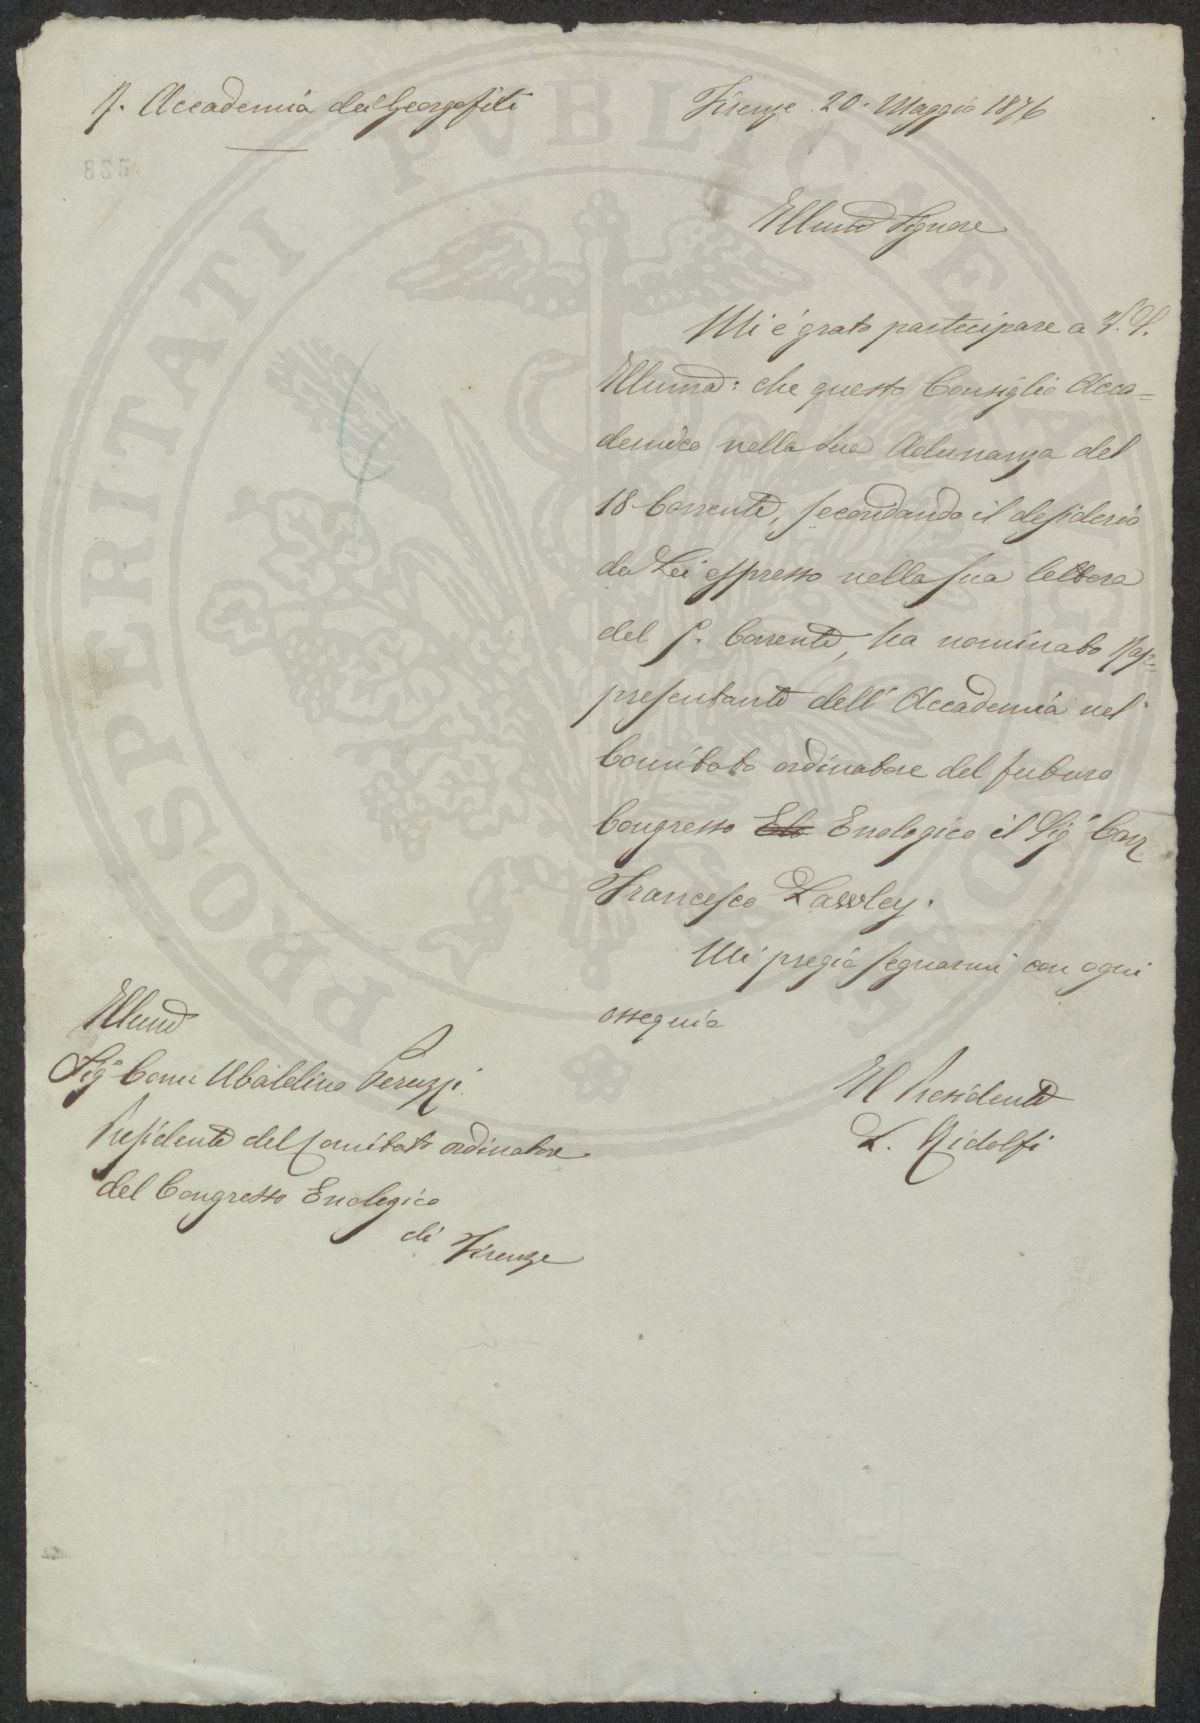 R. Accademia dei Georgofili
Firenze 20. Maggio 1876
Illmo Signore
Mi è grato partecipare a V. S.
Illuma: che questo Consiglio Acca=
demico nella sua Adunanza del
18 Corrente, secondando il desiderio
da Lei espresso nella sua lettera
del Corrente, ha nominato Rap=
presentante dell'Accademia nel
Comitato ordinatore del futuro
Congresso Elo Enologico il Sigr Cav
Francesco Lawley.
Mi pregio segnarmi con ogni
ossequio
Il Presidente
L. Ridolfi
Illmo
Sigr Comm Ubaldino Peruzzi
Presidente del Comitato ordinatore
del Congresso Enologico
di Firenze
PROSPERITATI PVBLICAE AVGENDAE